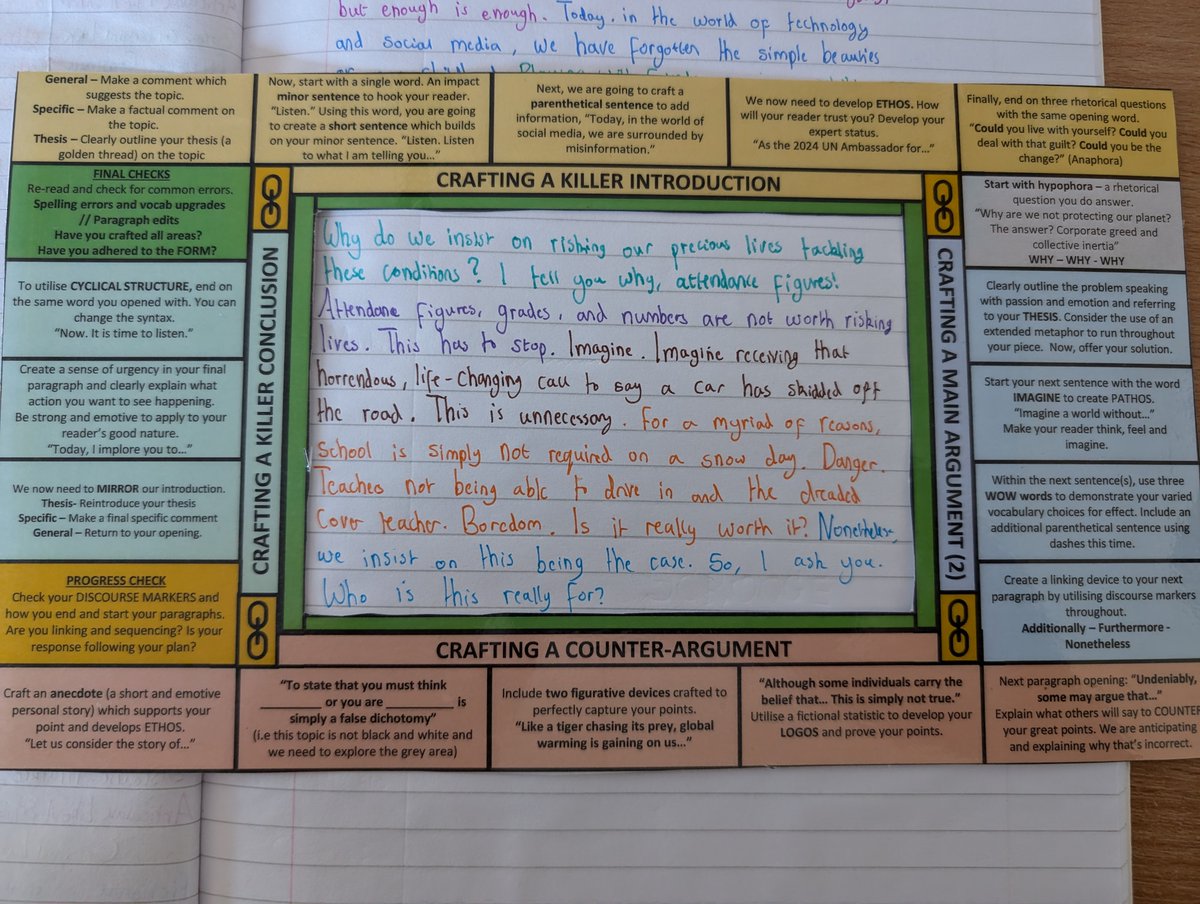 but enough is enough. Today, in the world of technology
and social media, we have forgotten the simple beauties
General – Make a comment which
suggests the topic.
Specific – Make a factual comment on
the topic.
Thesis – Clearly outline your thesis (a
golden thread) on the topic
Now, start with a single word. An impact
minor sentence to hook your reader.
“Listen.” Using this word, you are going
to create a short sentence which builds
on your minor sentence. “Listen. Listen
to what I am telling you…”
Next, we are going to craft a
parenthetical sentence to add
information, “Today, in the world of
social media, we are surrounded by
misinformation.”
We now need to develop ETHOS. How
will your reader trust you? Develop your
expert status.
“As the 2024 UN Ambassador for…”
Finally, end on three rhetorical questions
with the same opening word.
“Could you live with yourself? Could you
deal with that guilt? Could you be the
change?” (Anaphora)
CRAFTING A KILLER INTRODUCTION
FINAL CHECKS
Re-read and check for common errors.
Spelling errors and vocab upgrades
// Paragraph edits
Have you crafted all areas?
Have you adhered to the FORM?
To utilise CYCLICAL STRUCTURE, end on
the same word you opened with. You can
change the syntax.
“Now. It is time to listen.”
Create a sense of urgency in your final
paragraph and clearly explain what
action you want to see happening.
Be strong and emotive to apply to your
reader’s good nature.
“Today, I implore you to…”
We now need to MIRROR our introduction.
Thesis- Reintroduce your thesis
Specific – Make a final specific comment
General – Return to your opening.
PROGRESS CHECK
Check your DISCOURSE MARKERS and
how you end and start your paragraphs.
Are you linking and sequencing? Is your
response following your plan?
CRAFTING A KILLER CONCLUSION
Why do we insist on risking our precious lives tackling
these conditions? I tell you why, attendance figures!
Attendane figures, grades, and numbers are not worth risking
lives. This has to stop. Imagine. Imagine receiving that
horrendous, life-changing call to say a car has skidded off
the road. This is unnecessary. For a myriad of reasons,
school is simply not required on a snow day. Danger.
Teaches not being able to drive in and the dreaded
cover teacher. Boredom. Is it really worth it? Nonetheless,
we insist on this being the case. So, I ask you.
Who is this really for?
CRAFTING A MAIN ARGUMENT (2)
Start with hypophora – a rhetorical
question you do answer.
“Why are we not protecting our planet?
The answer? Corporate greed and
collective inertia”
WHY – WHY - WHY
Clearly outline the problem speaking
with passion and emotion and referring
to your THESIS. Consider the use of an
extended metaphor to run throughout
your piece. Now, offer your solution.
Start your next sentence with the word
IMAGINE to create PATHOS.
“Imagine a world without…”
Make your reader think, feel and
imagine.
Within the next sentence(s), use three
WOW words to demonstrate your varied
vocabulary choices for effect. Include an
additional parenthetical sentence using
dashes this time.
Create a linking device to your next
paragraph by utilising discourse markers
throughout.
Additionally – Furthermore -
Nonetheless
CRAFTING A COUNTER-ARGUMENT
Craft an anecdote (a short and emotive
personal story) which supports your
point and develops ETHOS.
“Let us consider the story of…”
“To state that you must think
__________ or you are __________ is
simply a false dichotomy”
(i.e this topic is not black and white and
we need to explore the grey area)
Include two figurative devices crafted to
perfectly capture your points.
“Like a tiger chasing its prey, global
warming is gaining on us…”
“Although some individuals carry the
belief that… This is simply not true.”
Utilise a fictional statistic to develop your
LOGOS and prove your points.
Next paragraph opening: “Undeniably,
some may argue that…”
Explain what others will say to COUNTER
your great points. We are anticipating
and explaining why that’s incorrect.